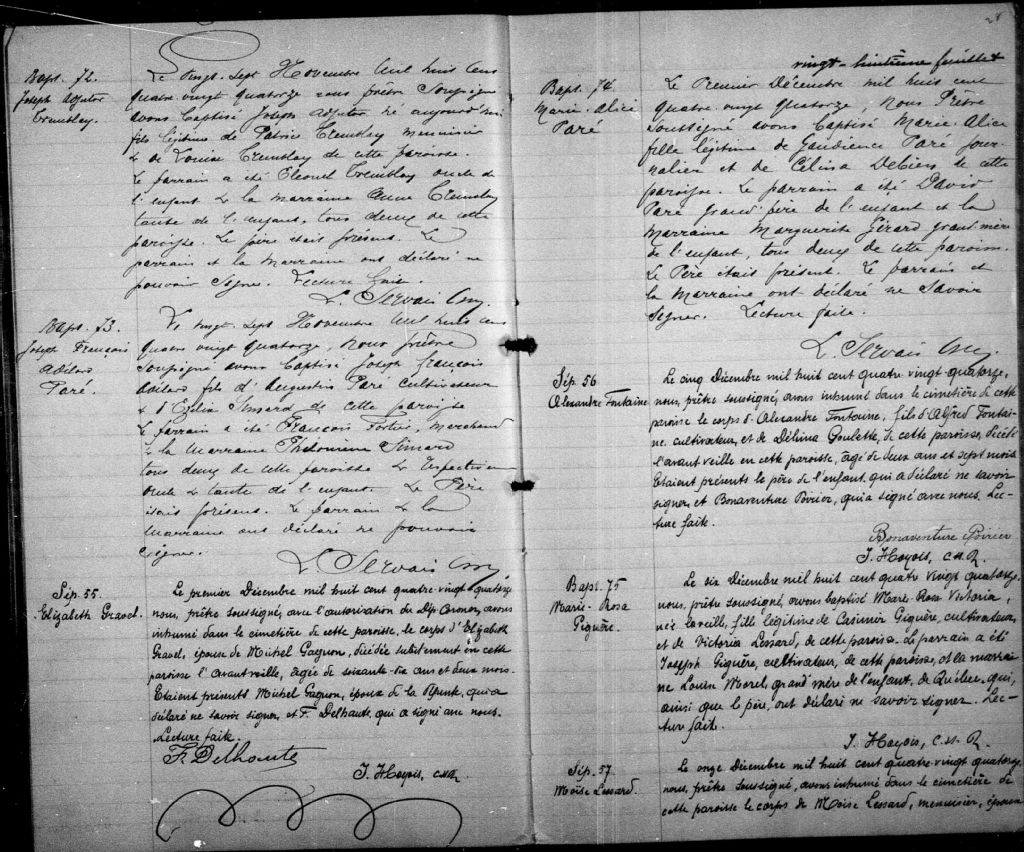 Bapt. 72.
Joseph Adjutor
Tremblay.
Le vingt-sept Novembre mil huit cent
quatre vingt quatorze nous prêtre soussigné
avons baptisé Joseph Adjutor né aujourd'hui
fils légitime de Patrice Tremblay menuisier
& de Louise Tremblay de cette paroisse.
Le parrain a été Tremblay oncle de
l'enfant & la marraine Anne Tremblay
tante de l'enfant, tous deux de cette
paroisse. Le père était présent. Le
parrain et la marraine ont déclaré ne
pouvoir signer. Lecture faite.
L. Servais
Bapt. 73.
Joseph François
Adélard
Paré.
Le vingt-sept Novembre mil huit cent
quatre vingt quatorze, nous prêtre
soussigné avons baptisé Joseph François
Adélard fils d'Augustin Paré cultivateur
& d' Simard de cette paroisse
Le parrain a été François Fortier, marchand
& la marraine Philomène Simard
tous deux de cette paroisse & respectivem
oncle & tante de l'enfant. Le Père
était présent. Le parrain & la
marraine ont déclaré ne pouvoir
signer.
L. Servais
Sép. 55.
Elizabeth Gravel.
Le premier Décembre mil huit cent quatre-vingt-quatorze
nous, prêtre soussigné, avec l'autorisation du Dép. Coroner, avons
inhumé dans le cimetière de cette paroisse, le corps d'Elizabeth
Gravel, épouse de Michel Gagnon, décédée subitement en cette
paroisse l'avant veille, agée de soixante-dix ans et deux mois.
Etaient présents Michel Gagnon, époux de la défunte, qui a
déclaré ne savoir signer, et F. Delhaute, qui a signé avec nous.
Lecture faite.
F. Delhaute
J. Hoyois, C.SS.R.
28
vingt-huitième feuillet
Bapt. 74
Marie-Alice
Paré
Le Premier Décembre mil huit cent
quatre vingt quatorze, Nous Prêtre
soussigné avons baptisé Marie-Alice
fille légitime de Gaudience Paré jour-
nalier et de Célina DeBlois de cette
paroisse. Le parrain a été David
Paré grand'père de l'enfant et la
marraine Marguerite Gérard grand'mère
de l'enfant, tous deux de cette paroisse.
Le Père était présent. Le parrain et
la marraine ont déclaré ne savoir
signer. Lecture faite.
L. Servais
Sép. 56
Alexandre Fontaine
Le cinq Décembre mil huit cent quatre vingt quatorze,
nous, prêtre soussigné, avons inhumé dans le cimetière de cette
paroisse le corps d'Alexandre Fontaine, fils d'Alfred Fontai-
ne, cultivateur, et de Délima Goulette, de cette paroisse, décédé
l'avant veille en cette paroisse, agé de deux ans et sept mois.
Etaient présents le père de l'enfant, qui a déclaré ne savoir
signer, et Bonaventure Poirier, qui a signé avec nous. Lec-
ture faite.
Bonaventure Poirier
J. Hoyois, C.SS.R.
Bapt. 75
Marie-Rosa
Giguère.
Le six Décembre mil huit cent quatre vingt quatorze,
nous, prêtre soussigné, avons baptisé Marie-Rosa Victoria,
née la veille, fille légitime de Casimir Giguère, cultivateur,
et de Victoria Lessard, de cette paroisse. Le parrain a été
Joseph Giguère, cultivateur, de cette paroisse, et la marrai-
ne Louise Morel, grand'mère de l'enfant, de Québec, qui,
ainsi que le père, ont déclaré ne savoir signer. Lec-
ture faite.
J. Hoyois, C.SS.R.
Sép. 57.
Moïse Lessard.
Le onze Décembre mil huit cent quatre-vingt quatorze,
nous, prêtre soussigné, avons inhumé dans le cimetière de
cette paroisse le corps de Moïse Lessard, menuisier, époux